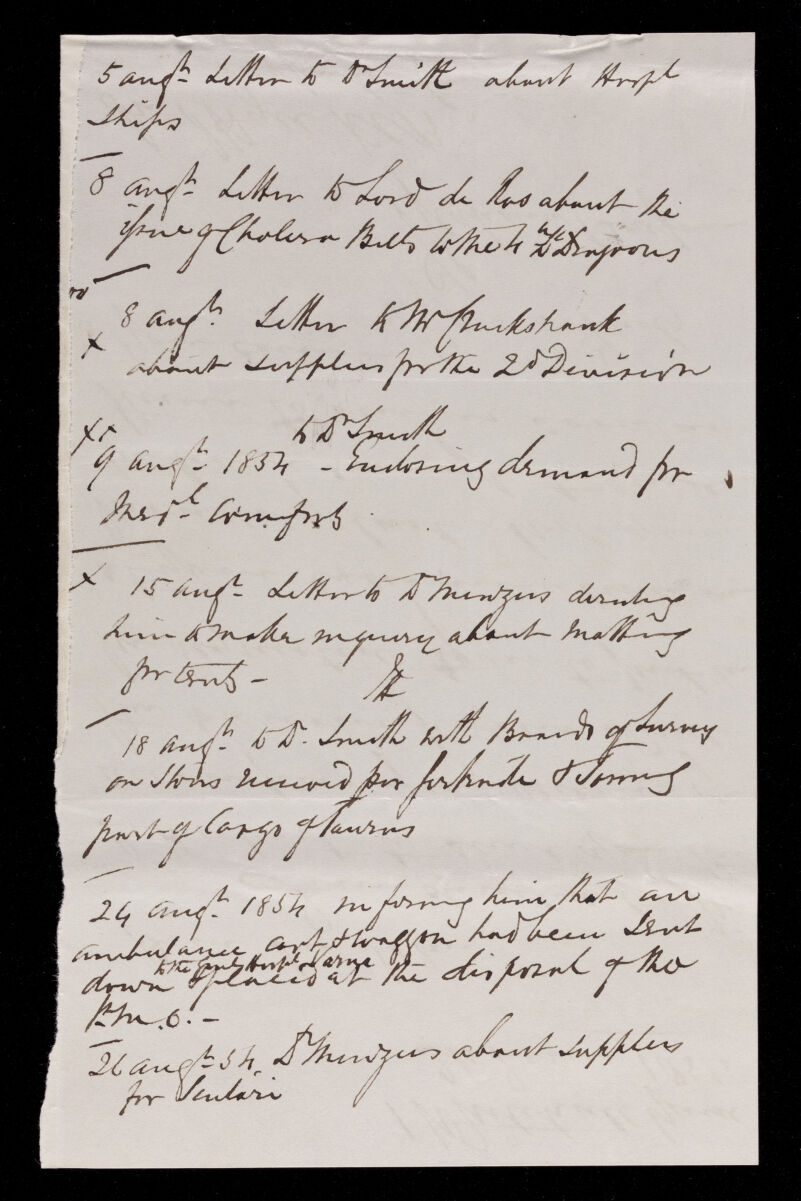 5 augt. Letter to Dr Smith about Hospl
Ships
8 augt. Letter to Lord de Ros about the
issue of Cholera Belts to the 4th Lt Dragoons
8 augt. Letter to Mr Cruikshank
x
about supplies for the 2d Division
xx
to Dr Smith
9 augt. 1854 - Enclosing demand for
Medl. Comforts
x 15 augt. Letter to Dr Menzies directing
him to make inquiry about Matting
for tents -
18 augt. to Dr. Smith with Boards of Survey
on Stores received per &
part of Cargo of Taurus
24 augt. 1854 informing him that an
ambulance cart & waggon had been sent
to the Genl Hospl Varna
down & placed at the disposal of the
P.M.O. -
26 augt. 54. Dr Menzies about supplies
for Scutari